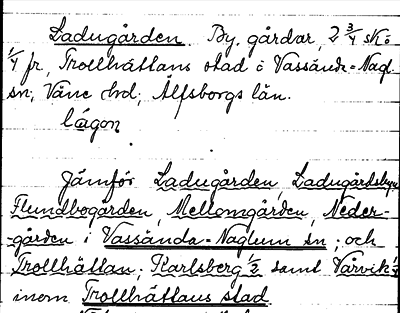 Ladugården By, gårdar, 2 3/4 sk:o
1/4 fr, Trollhättans stad i Vassända-Nagl.
sn; Väne hd, Älfsborgs län.
lágon
Jämför Ladugården, Ladugårdsbyn,
Flundbogården, Mellomgården, Neder-
-gården i Vassända-Naglum sn; och
Trollhättan; Karlsberg 1/2 samt Vårvik 1/4
inom Trollhättans stad.